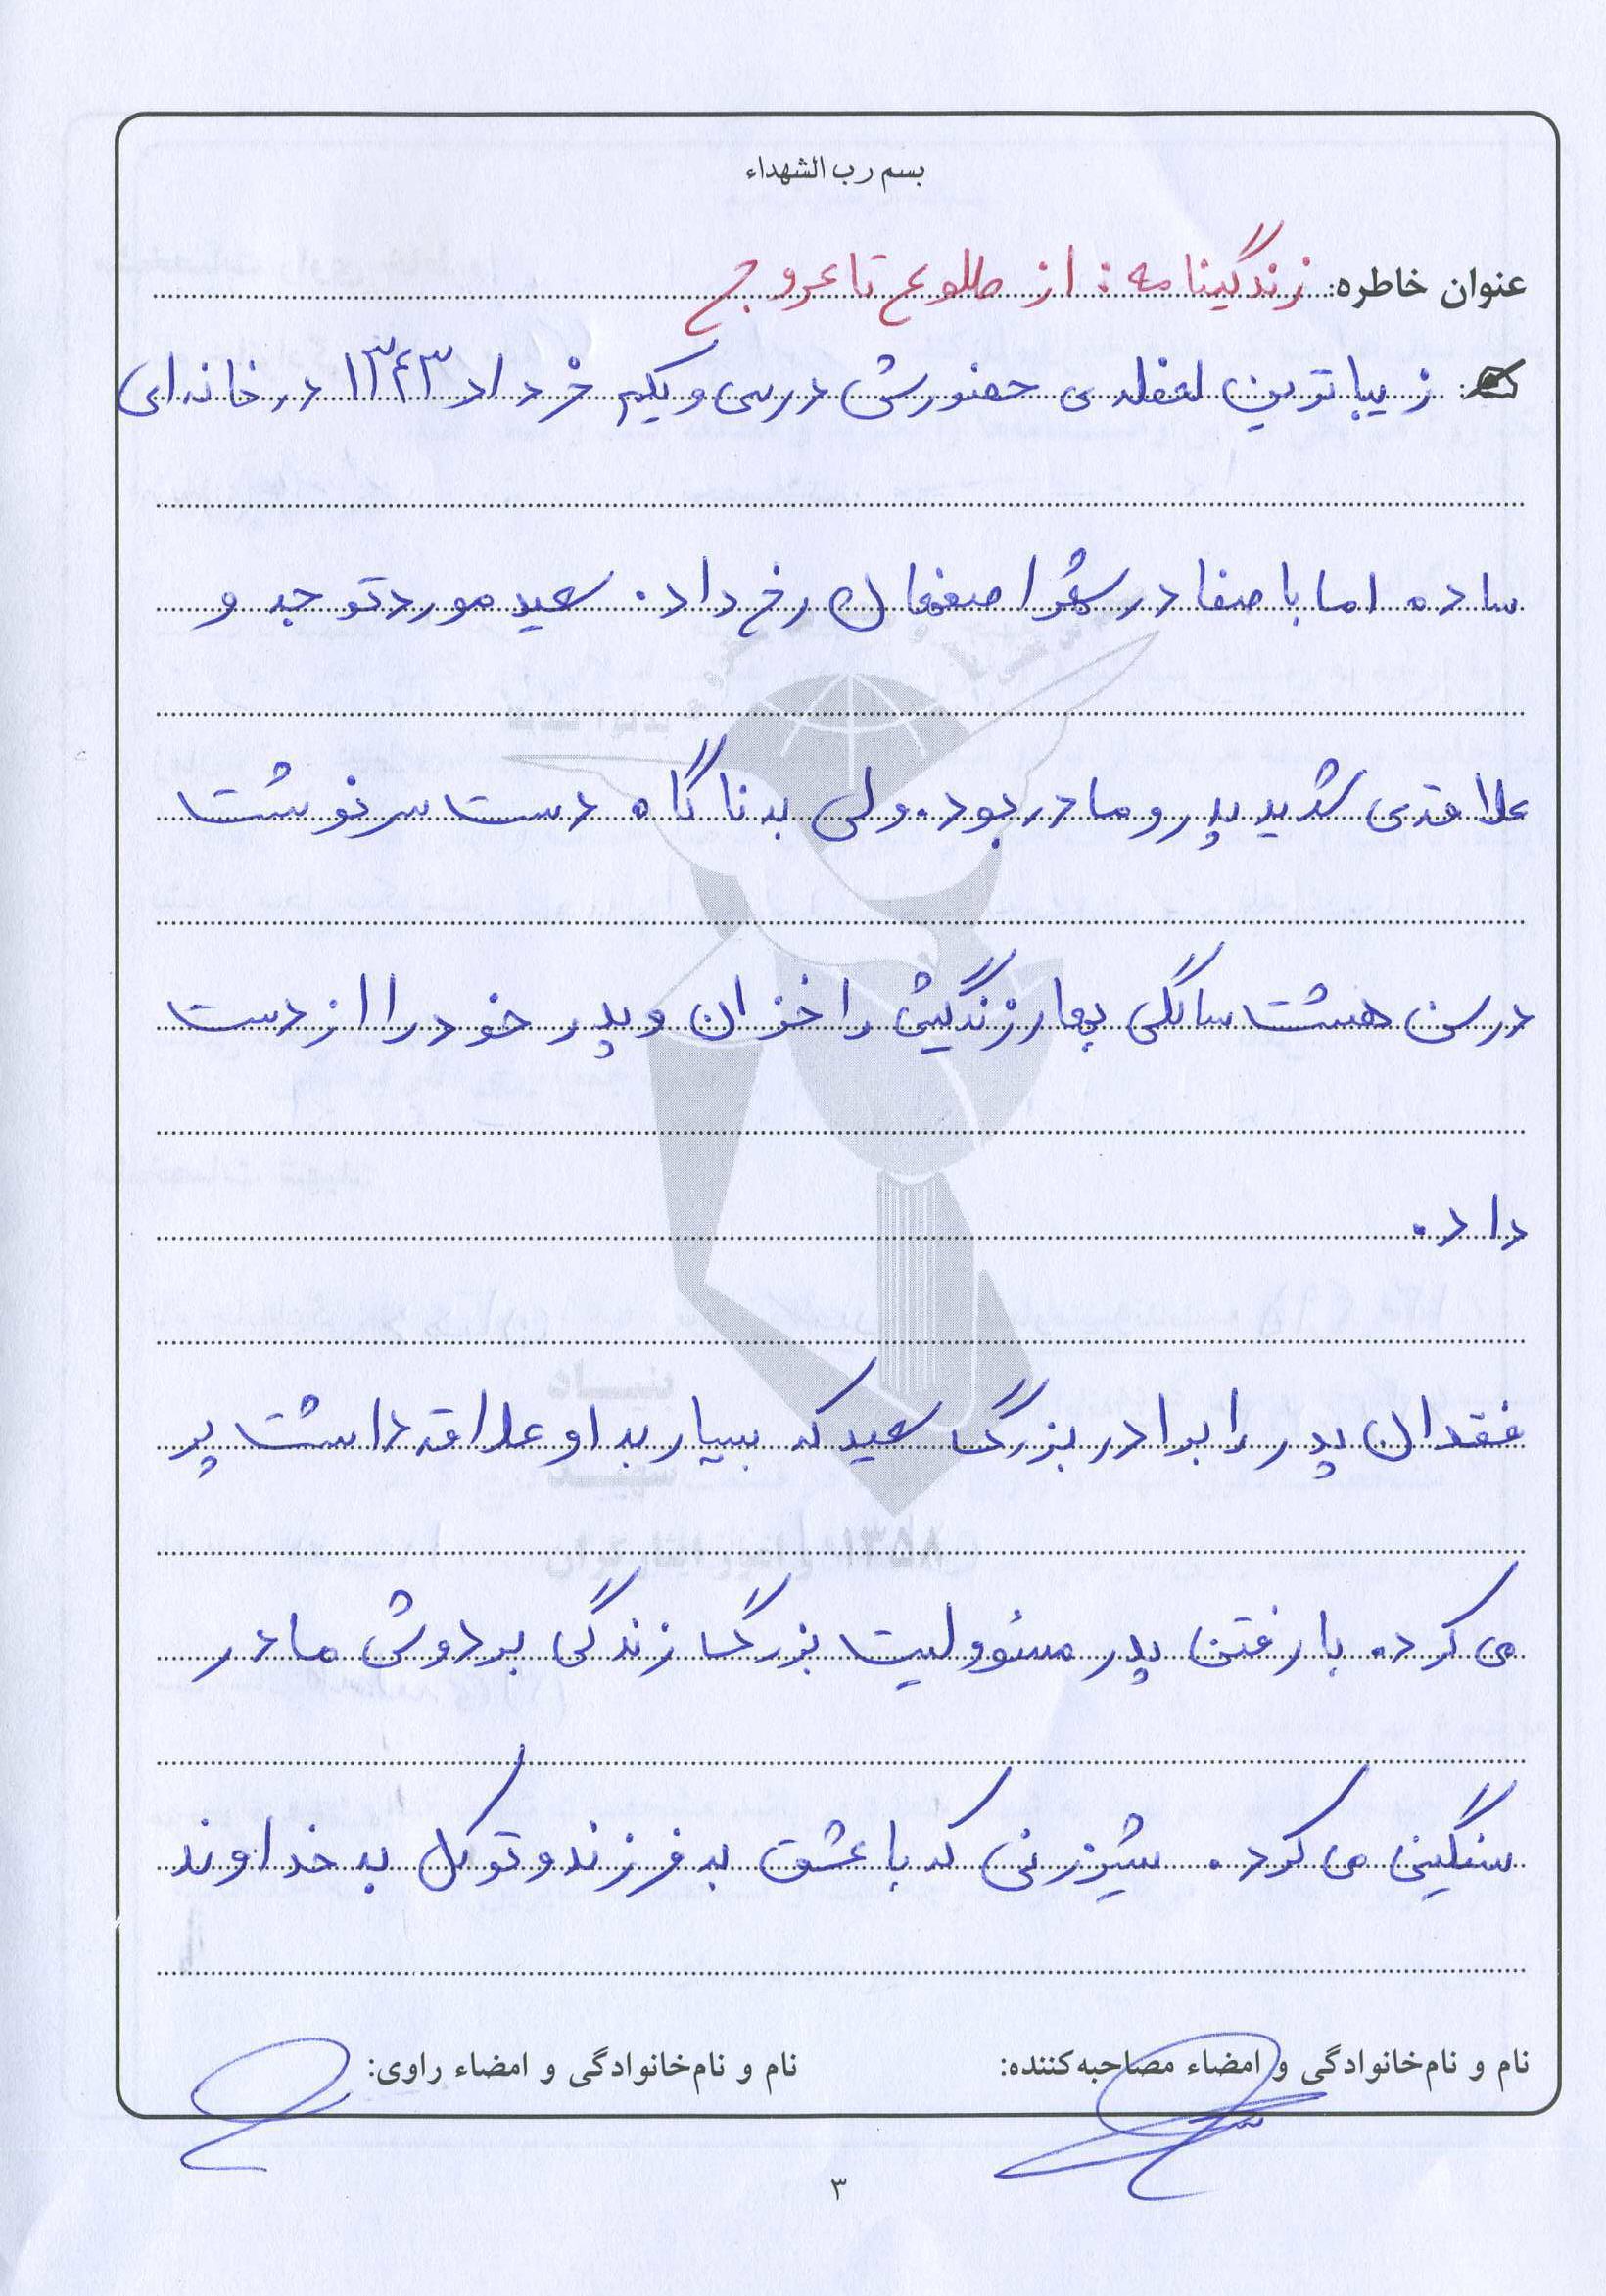 بسم رب الشهداء
عنوان خاطره: زندگینامه: از طلوع تا عروج
زیباترین لحظه‌ی حضورش در سی و یکم خرداد ۱۳۴۳ در خانه‌ای
ساده اما با صفا در شهر اصفهان رخ داد. سعید مورد توجه و
علاقه‌ی شدید پدر و مادر بود. ولی به ناگاه دست سرنوشت
در سن هشت سالگی بهار زندگیش را خزان و پدر خود را از دست
داد.
فقدان پدر را برادر بزرگ سعید که بسیار به او علاقه داشت پر
می‌کرد. با رفتن پدر مسئوولیت بزرگ زندگی بر دوش مادر
سنگینی می‌کرد. شیرزنی که با عشق به فرزند و توکل به خداوند
نام و نام‌خانوادگی و امضاء مصاحبه‌کننده:
نام و نام‌خانوادگی و امضاء راوی:
۳